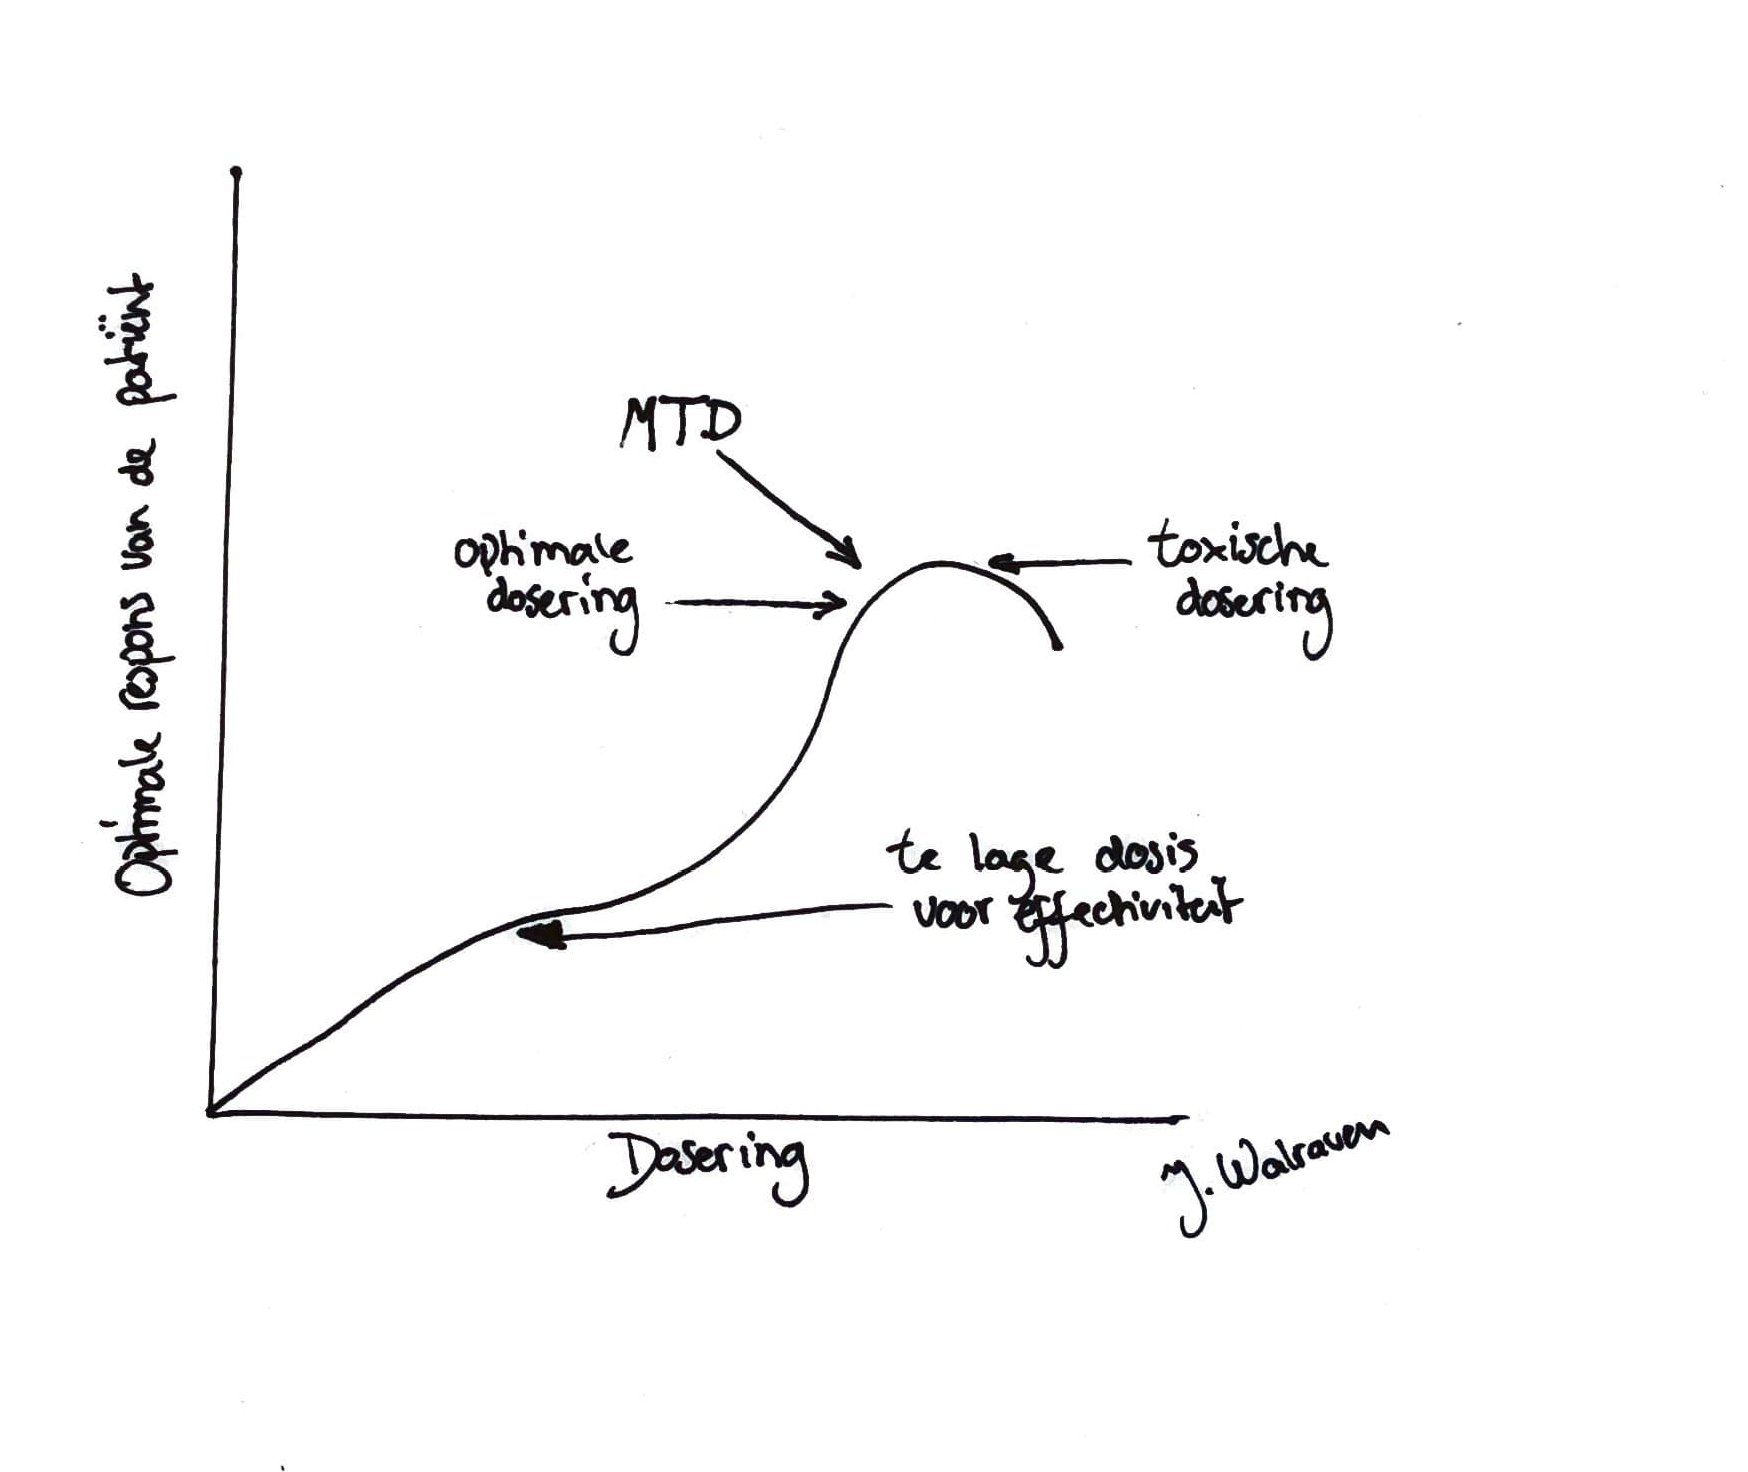 Optimale respons van de patiënt
MTD
optimale
dosering
toxische
dosering
te lage dosis
voor effectiviteit
Dosering
J. Walraven